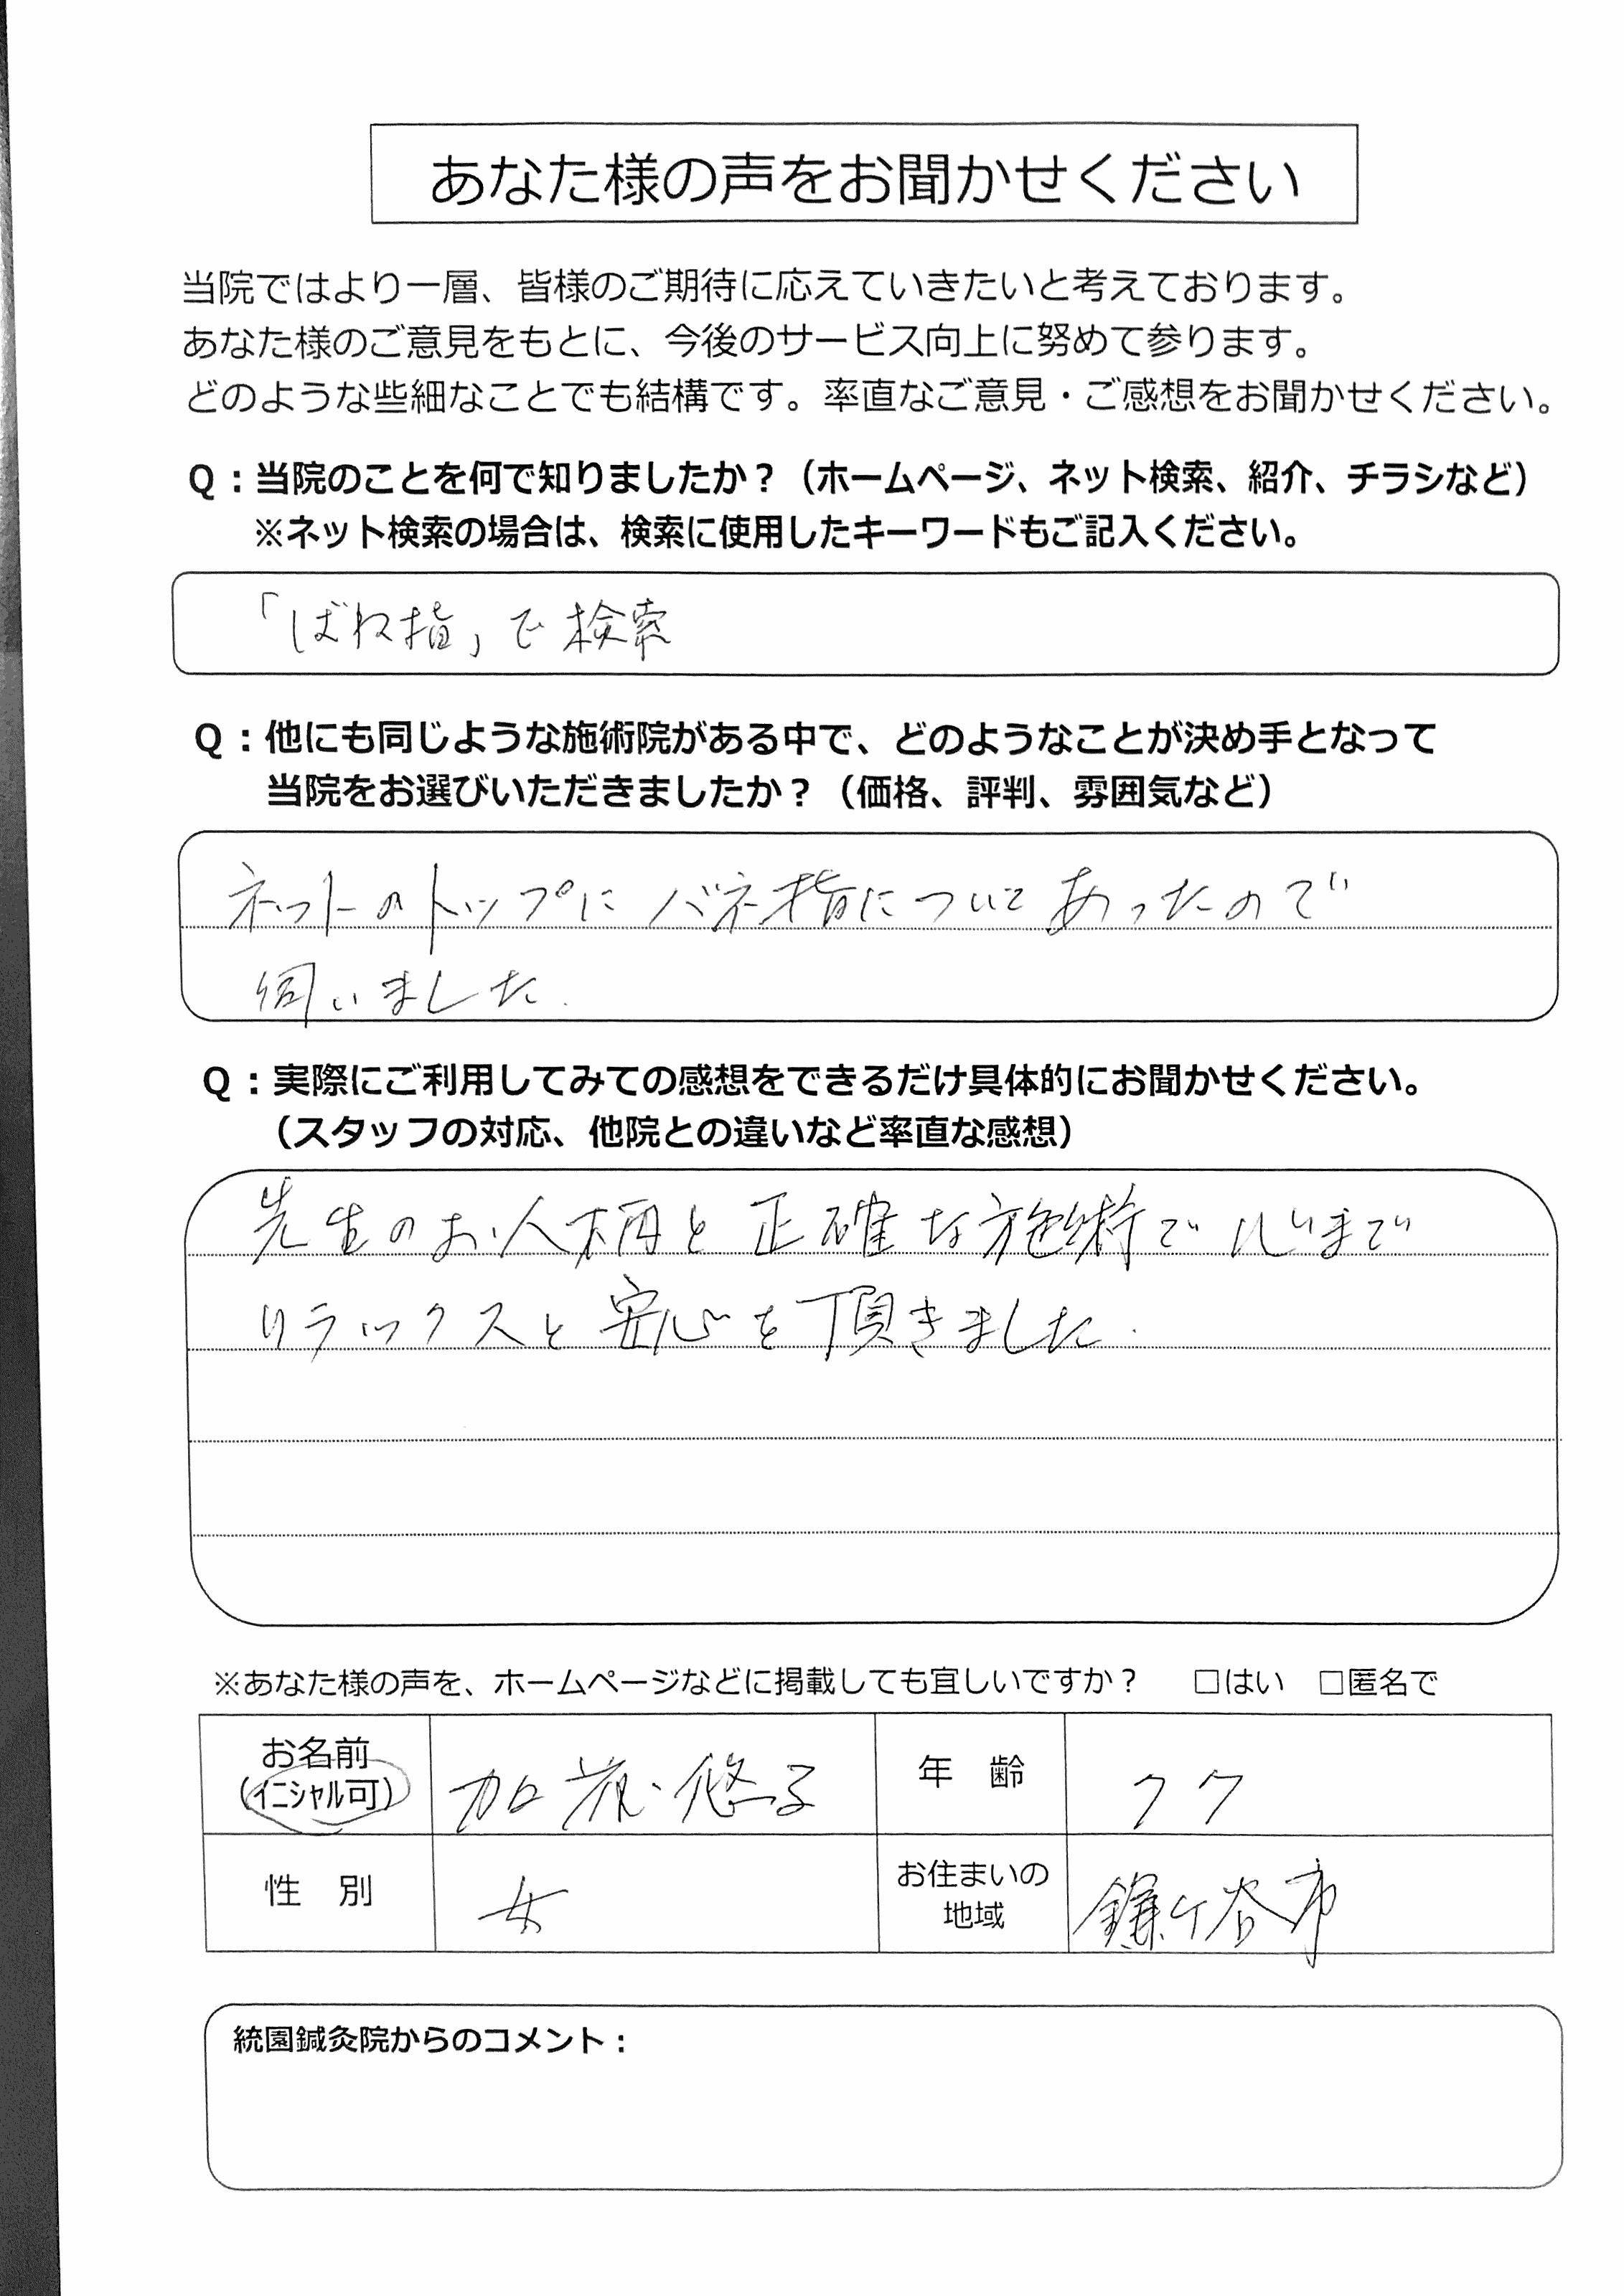 あなた様の声をお聞かせください
当院ではより一層、皆様のご期待に応えていきたいと考えております。
あなた様のご意見をもとに、今後のサービス向上に努めて参ります。
どのような些細なことでも結構です。率直なご意見・ご感想をお聞かせください。
Q：当院のことを何で知りましたか？（ホームページ、ネット検索、紹介、チラシなど）
※ネット検索の場合は、検索に使用したキーワードもご記入ください。
「ばね指」で検索
Q：他にも同じような施術院がある中で、どのようなことが決め手となって
当院をお選びいただきましたか？（価格、評判、雰囲気など）
ネットのトップにバネ指についてあったので
伺いました.
Q：実際にご利用してみての感想をできるだけ具体的にお聞かせください。
（スタッフの対応、他院との違いなど率直な感想）
先生のお人柄と正確な施術で心まで
リラックスと安心を頂きました.
※あなた様の声を、ホームページなどに掲載しても宜しいですか？ □はい □匿名で
お名前 加 悠子 年 齢 77
（ｲﾆｼｬﾙ可）
性 別 女 お住まいの 鎌ヶ谷市
地域
統園鍼灸院からのコメント：